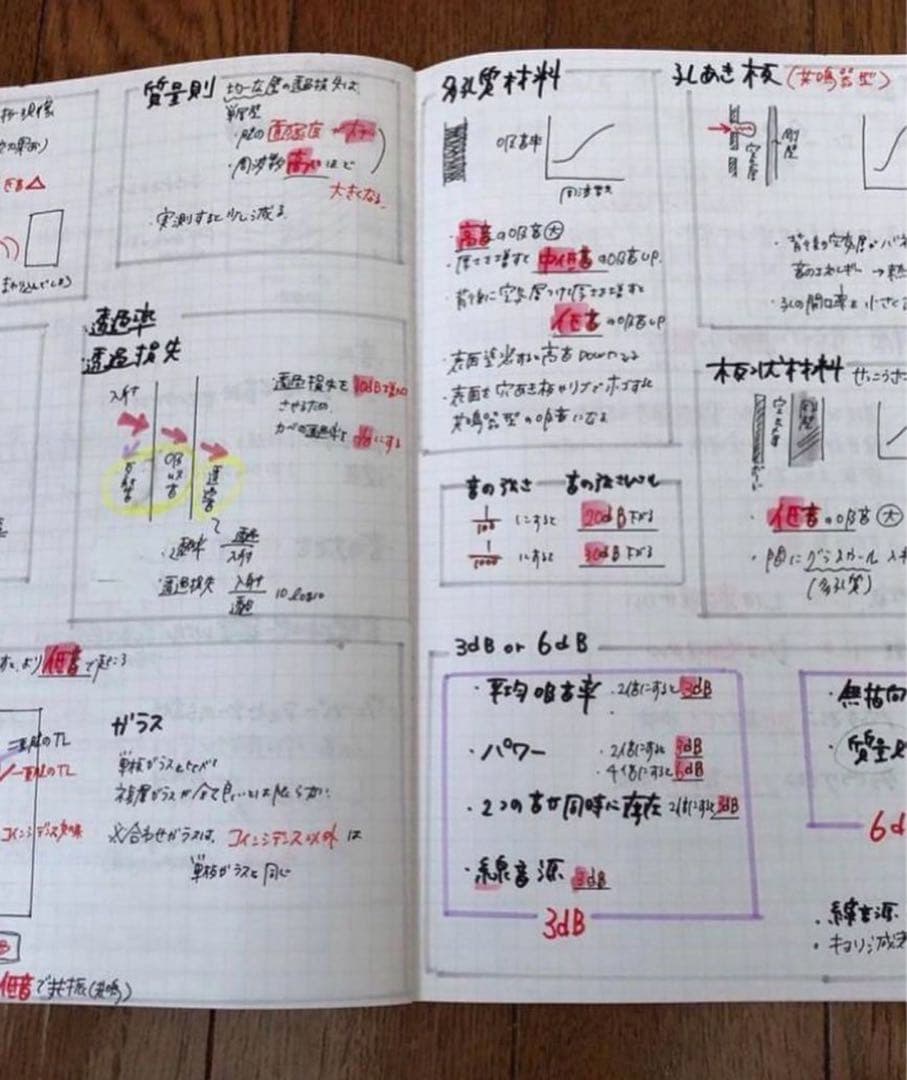 質量則
均一な壁の透過損失は、
単層壁
・周波数高いほど
大きくなる
・実測すると少し減る。
透過率
透過損失
入射
反射音
吸収音
透過音
透過損失を10dB増加
させるため、
カベの透過率を
にする
・透過率 透過/入射
・透過損失 入射/透過 10log10
より低音で起こる
二重壁のTL
一重壁のTL
コインシデンス効果
ガラス
単板ガラスとくらべ
複層ガラスが全て良いとは限らない
合わせガラスは、コインシデンス以外は
単板ガラスと同じ
低音で共振(共鳴)
多孔質材料
吸音率
周波数
高音の吸音大
・厚さを増すと中低音の吸音UP.
・背後に空気層つけ厚さを増すと
低音の吸音UP
・表面塗装すると高音Downになる
・表面を穴あき板やリブでホゴすれ
共鳴器型の吸音になる
音の強さ 音の強さレベル
1/100 にすると 20dB下がる
1/1000 にすると 30dB下がる
3dB or 6dB
・平均吸音率 ・2倍にすると3dB
・パワー ・2倍にすると3dB
・4倍にすると6dB
・2つの音が同時に存在 2倍にすると3dB
・線音源 3dB
3dB
孔あき板(共鳴器型)
空気層
剛壁
・背後の空気層がバネ
音のエネルギー→熱
・孔の開口率を小さくと
板状材料 せっこうボ
空気層
剛壁
低音の吸音大
・間にグラスウール入
(多孔質)
無指向
質量則
6d
・線音源
・キョリ減衰